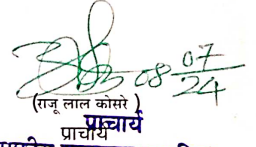 08 07/24
(राजू लाल कोसरे)
प्राचार्य
प्राचार्य